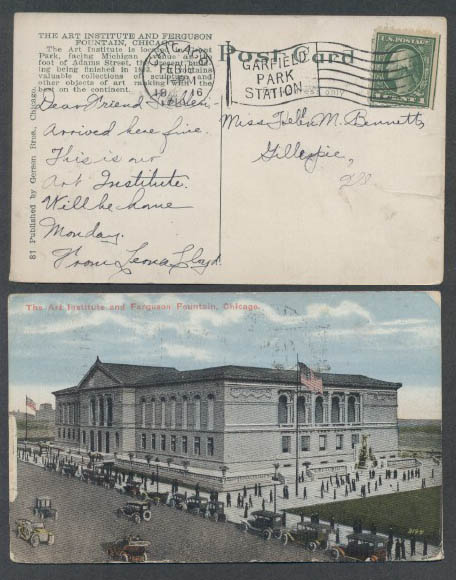 THE ART INSTITUTE AND FERGUSON
FOUNTAIN, CHICAGO.
The Art Institute is located in Grant
Park, facing Michigan Avenue at the
foot of Adams Street, the present build-
ing being finished in 1893. It contains
valuable collections of sculpture and
other objects of art, ranking with the
best on the continent.
Post Card
CHICAGO
FEB
GARFIELD
PARK
STATION
only
U.S. POSTAGE
Dear Friend Helen-
Arrived here fine.
This is our
Art Institute.
Will be home
Monday.
From Leona Lloyd.
Miss Helen M. Bennett,
Gillespie,
Ill
81 Published by Gerson Bros., Chicago.
The Art Institute and Ferguson Fountain, Chicago.